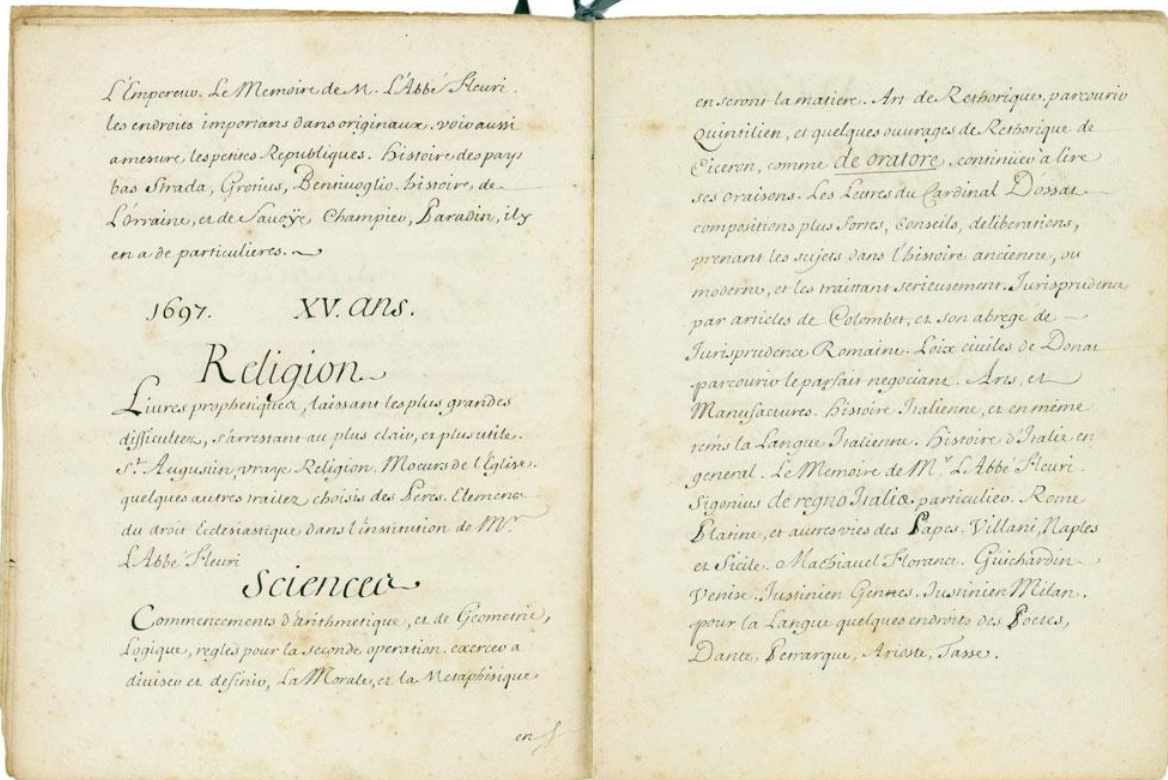 L'Empereur. Le Memoire de M. L'Abbé Fleuri.
les endroits importans dans originaux. voir aussi
a mesure les petites Republiques. histoire des pays
bas Strada, Grotius, Bentivoglio. histoire, de
Lorraine, et de Savoÿe Champier, Paradin, il y
en a de particulieres.
1697. XV. ans.
Religion
Livres prophetiques, laissant les plus grandes
difficultez, s'arrestant au plus clair, et plus utile.
St. Augustin, vraye Religion. Moeurs de l'Eglise.
quelques autres traitez choisis des Peres. Elemens
du droit Eclesiastique dans l'institution de Mr.
L'Abbé Fleuri
Sciences
Commencements d'arithmetique, et de Géometrie,
Logique, regles pour la seconde operation. exercer a
diviser et definir, La Morale, et la Metaphisique
en
en seront la matiere. Art de Rethorique, parcourir
Quintilien, et quelques ouvrages de Rethorique de
Ciceron, comme de oratore. continüer a lire
ses oraisons. Les Letres du Cardinal D'ossat
compositions plus fortes, Conseils, deliberations,
prenant les sujets dans l'histoire ancienne, ou
moderne, et les traittant serieusement. Jurisprudence
par articles de Colombet, et son abregé de
Jurisprudence Romaine. Loix civiles de Domat
parcourir le parfait negociant. Arts, et
Manufactures. histoire Italienne, et en même
tems la Langue Italienne. histoire d'Italie en
general. Le Memoire de Mr. L'Abbé Fleuri.
Sigonius de regno Italiæ particulier. Rome
Platine, et autres vies des Papes. Villani, Naples
et Sicile. Machiavel Florance. Guichardin
Venise. Justinien Gennes. Justinien Milan.
pour la Langue quelques endroits des Poetes,
Dante, Petrarque, Arioste, Tasse.